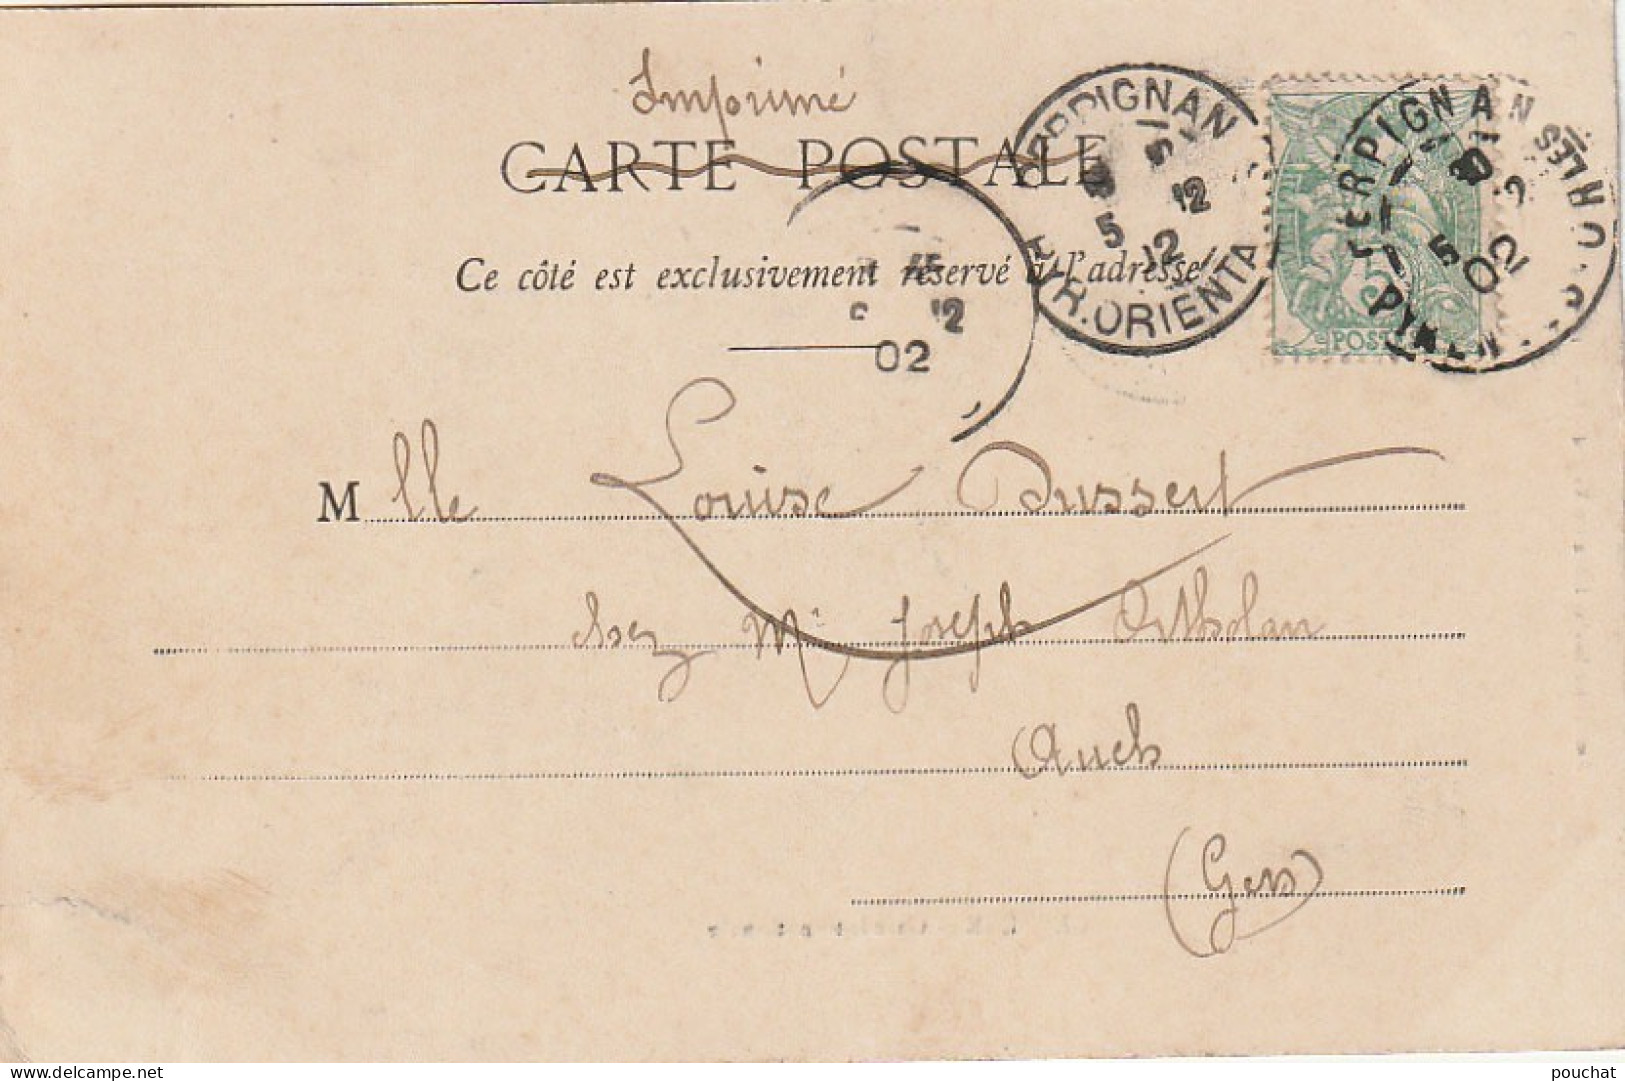 Imprimé
CARTE POSTALE
Ce côté est exclusivement réservé à l'adresse
PERPIGNAN
5 12
02
PYR. ORIENTALES
PERPIGNAN
5 02
5
POSTES
12
02
Mlle Louise Dussert
chez Mr Joseph Ortholan
Auch
(Gers)
delcampe.net
pouchat